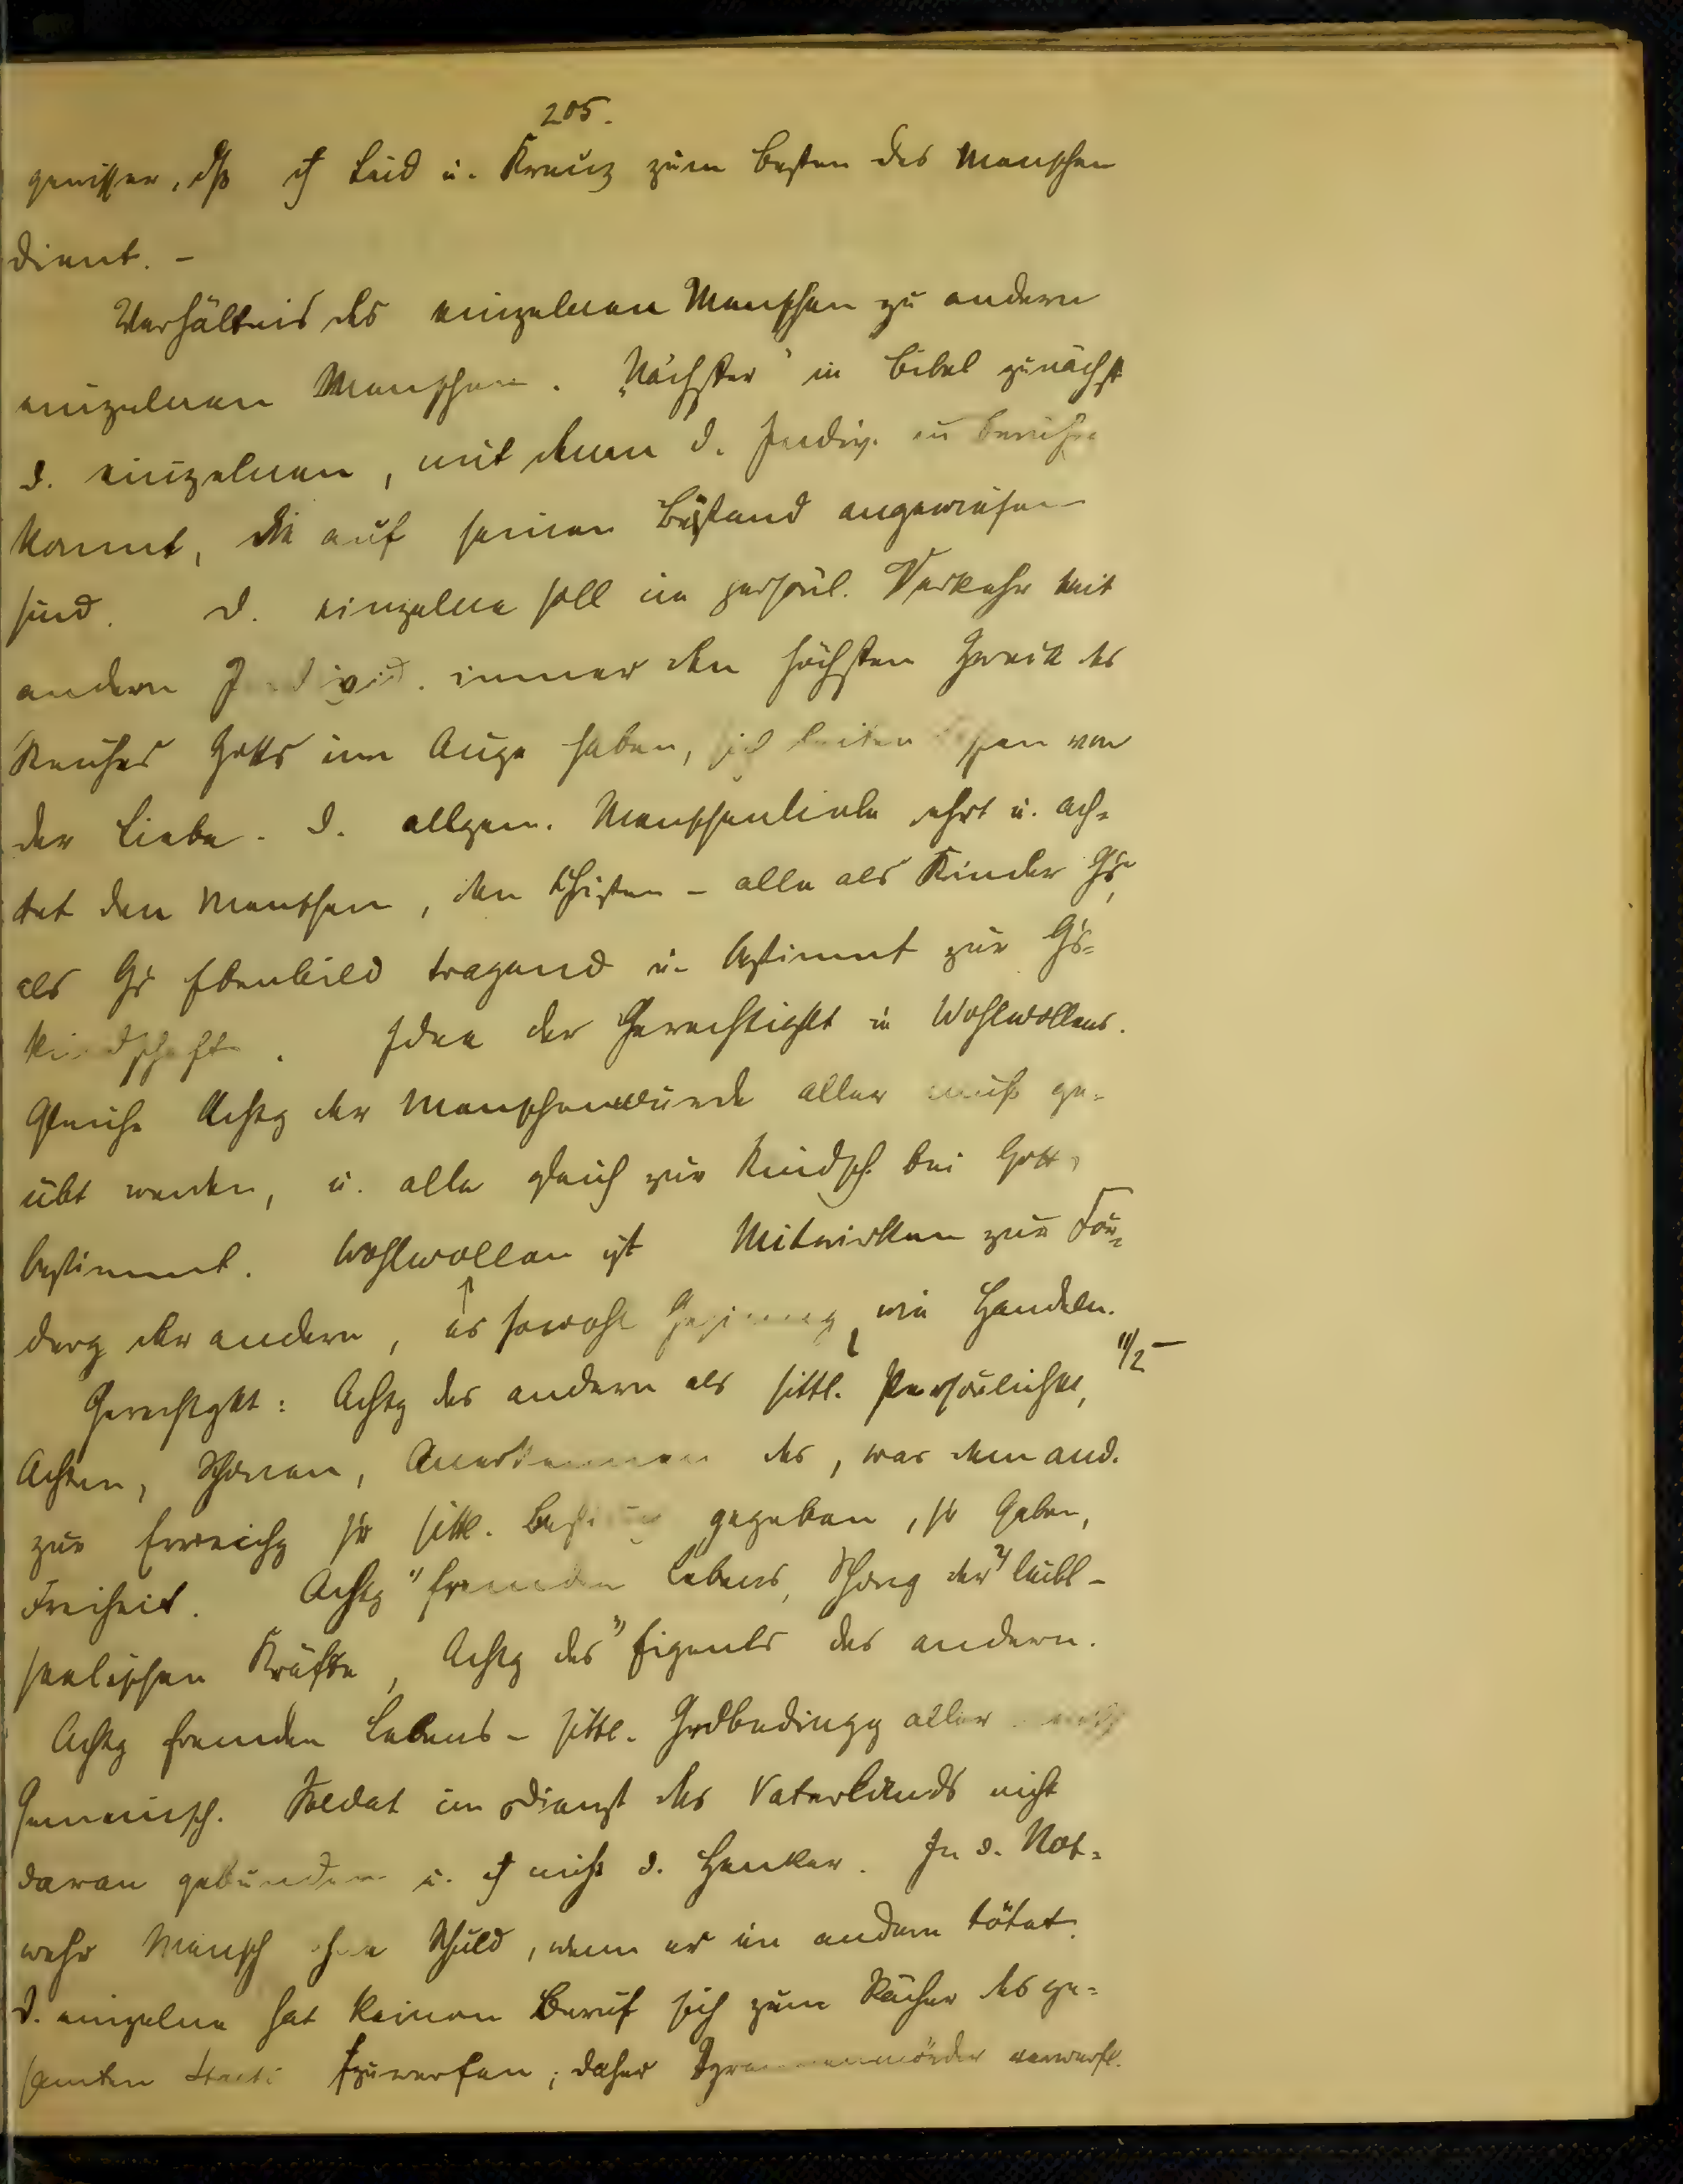 205.
gewisser, dß Leid u. Kreuz zum besten des Menschen
dient. -
Verhältnis des einzelnen Menschen zu andern
einzelnen Menschen. „Nächster" in Bibel zunächst
d. einzelnen, mit denen d. Indiv. in berühr
kommt, die auf seinen Beistand angewiesen
sind. D. einzelne soll im persönl. Verkehr mit
andern Individ. immer den höchsten Zweck des
Reiches Gotts im Auge haben, sich leiten lassen von
der Liebe. D. allgem. Menschenliebe ehrt u. ach-
tet den Menschen, den Christen - alle als Kinder Gs,
als Gs Ebenbild tragend u. bestimmt zur Gs-
kindschaft. Idee der Gerechtigkt u Wohlwollens.
Gleiche Achtg der Menschenwürde aller muß ge-
übt werden, u. alle gleich zur Kindsch. bei Gott
bestimmt. Wohlwollen ist Mitwirken zur För-
derg der andern, es sowohl Gesinnung, wie Handeln.
11/2
Gerechtgkt: Achtg des andern als sittl. Persönlichkt,
Achten, Schonen, Anerkennen des, was dem and.
zur Erreichg sr sittl. gegeben, sr Gaben,
Freiheit. Achtg 1) fremden Lebens, Schong der 2) leibl-
seelischen Kräfte, Achtg des 3) Eigents des andern.
Achtg fremden Lebens - sittl. Grdbedingg aller
Gemeinsch. Soldat im Dienst des Vaterlands nicht
daran gebunden u. nicht d. Henker. In d. Not-
wehr Mensch ohne Schuld, wenn er ein andern tötet.
D. einzelne hat keinen Beruf sich zum Rächer des ge-
samten Staats aufzuwerfen; daher Tyrannenmörder verwerfl.